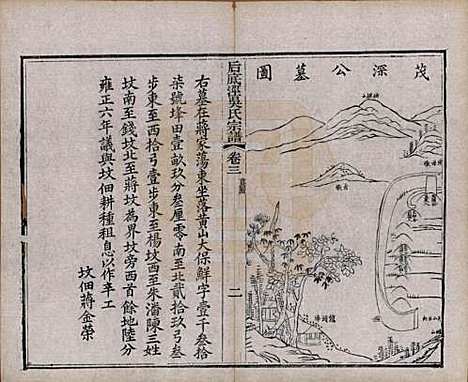 茂深公墓圖
后底涇吳氏宗譜
卷三
二
右墓在蔣家蕩東坐落黃山大保鮮字壹千叁拾
柒號埄田壹畝玖分叁厘零南至北貳拾玖弓叁
步東至西拾弓壹步東至楊坟西至朱潘陳三姓
坟南至錢坟北至蔣坟為界坟旁西首餘地陸分
雍正六年議與坟佃耕種租息以作辛工
坟佃蔣金榮